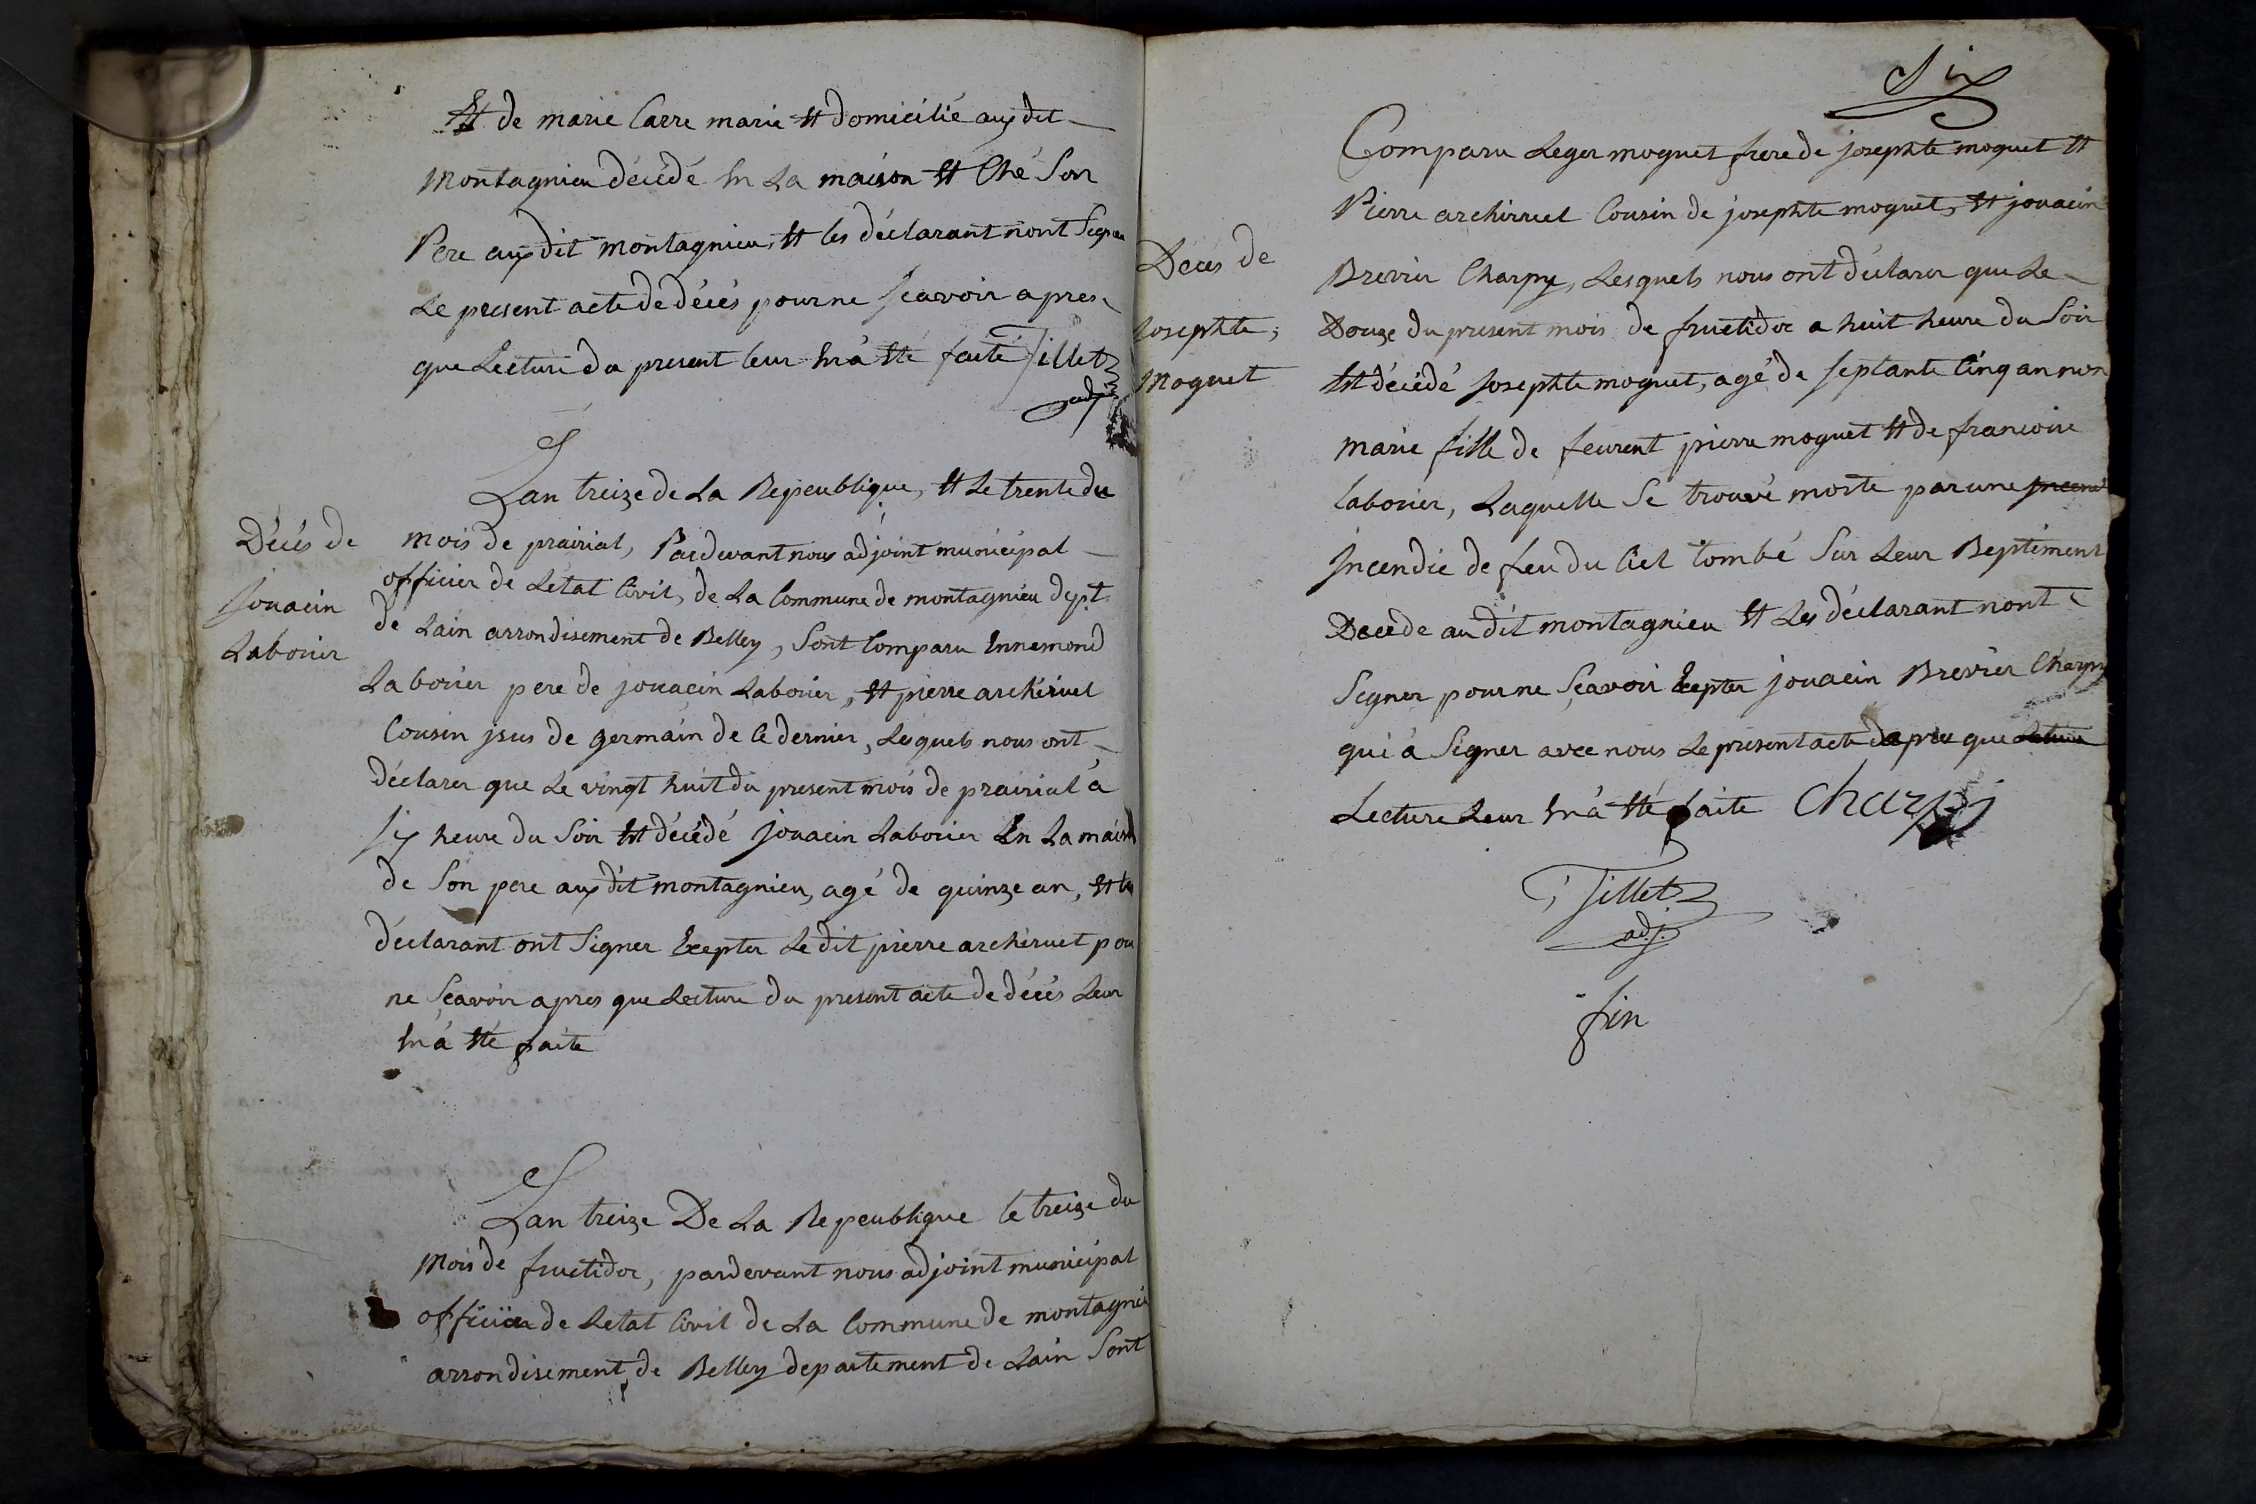 Et de marie Carre marie Et domicilié aux dit
Montagnieu décédé En La maison Et Ché Son
Pere aux dit montagnieu, Et les déclarant nont Signer
Le present acte de décés pour ne Scavoir apres
que Lecture du present leur En a Eté faite Tillet
adj
Lan treize de La Repeublique, Et Le trente du
Décés de
Jouacin
Laborier
mois de prairial, Pardevant nous adjoint municipal
officier de Létat Civil, de La Commune de montagnieu dept
de Lain arrondisement de Belley, Sont Comparu Ennemond
Laborier pere de jouacin Laborier, Et pierre archiruet
Cousin jsus de germain de Ce dernier, Lesquels nous ont
déclarer que Le vingt huit du present mois de prairial a
Six heure du Soir Est décédé Jouacin Laborier En La maison
de Son pere aux dit montagnieu, agé de quinze an, Et les
déclarant ont Signer Excepter Le dit pierre archiruet pour
ne Scavoir apres que Lecture du present acte de décés Leur
En a Eté faite
Lan treize De La Repeublique le treize du
Mois de fructidor, pardevant nous adjoint municipal
officier de Letat Civil de La Commune de montagnieu
arrondisement de Belley departement de Lain Sont
Six
Décés de
Josephte
Moquet
Comparu Leger moquet frere de josephte moquet Et
Pierre archirruet Cousin de josephte moquet, Et jouacin
Brevier Charpy, Lesquels nous ont déclarer que Le
Douze du present mois de fructidor a huit heure du Soir
Est décédé Josephte moquet, agé de septante Cinq an non
marie fille de feurent pierre moquet Et de francoise
laborier, Laquelle Se trouvé morte par une Incendi
Jncendie de feu du Ciel tombé Sur Leur Beptiment
Decede au dit montagnieu Et Les déclarant nont
Signer pour ne Scavoir Excepter jouacin Brevier Charpy
qui á Signer avec nous Le present acte dapres que Lecture
Lecture Leur En a Eté faite Charpy
Tillet
adj
fin